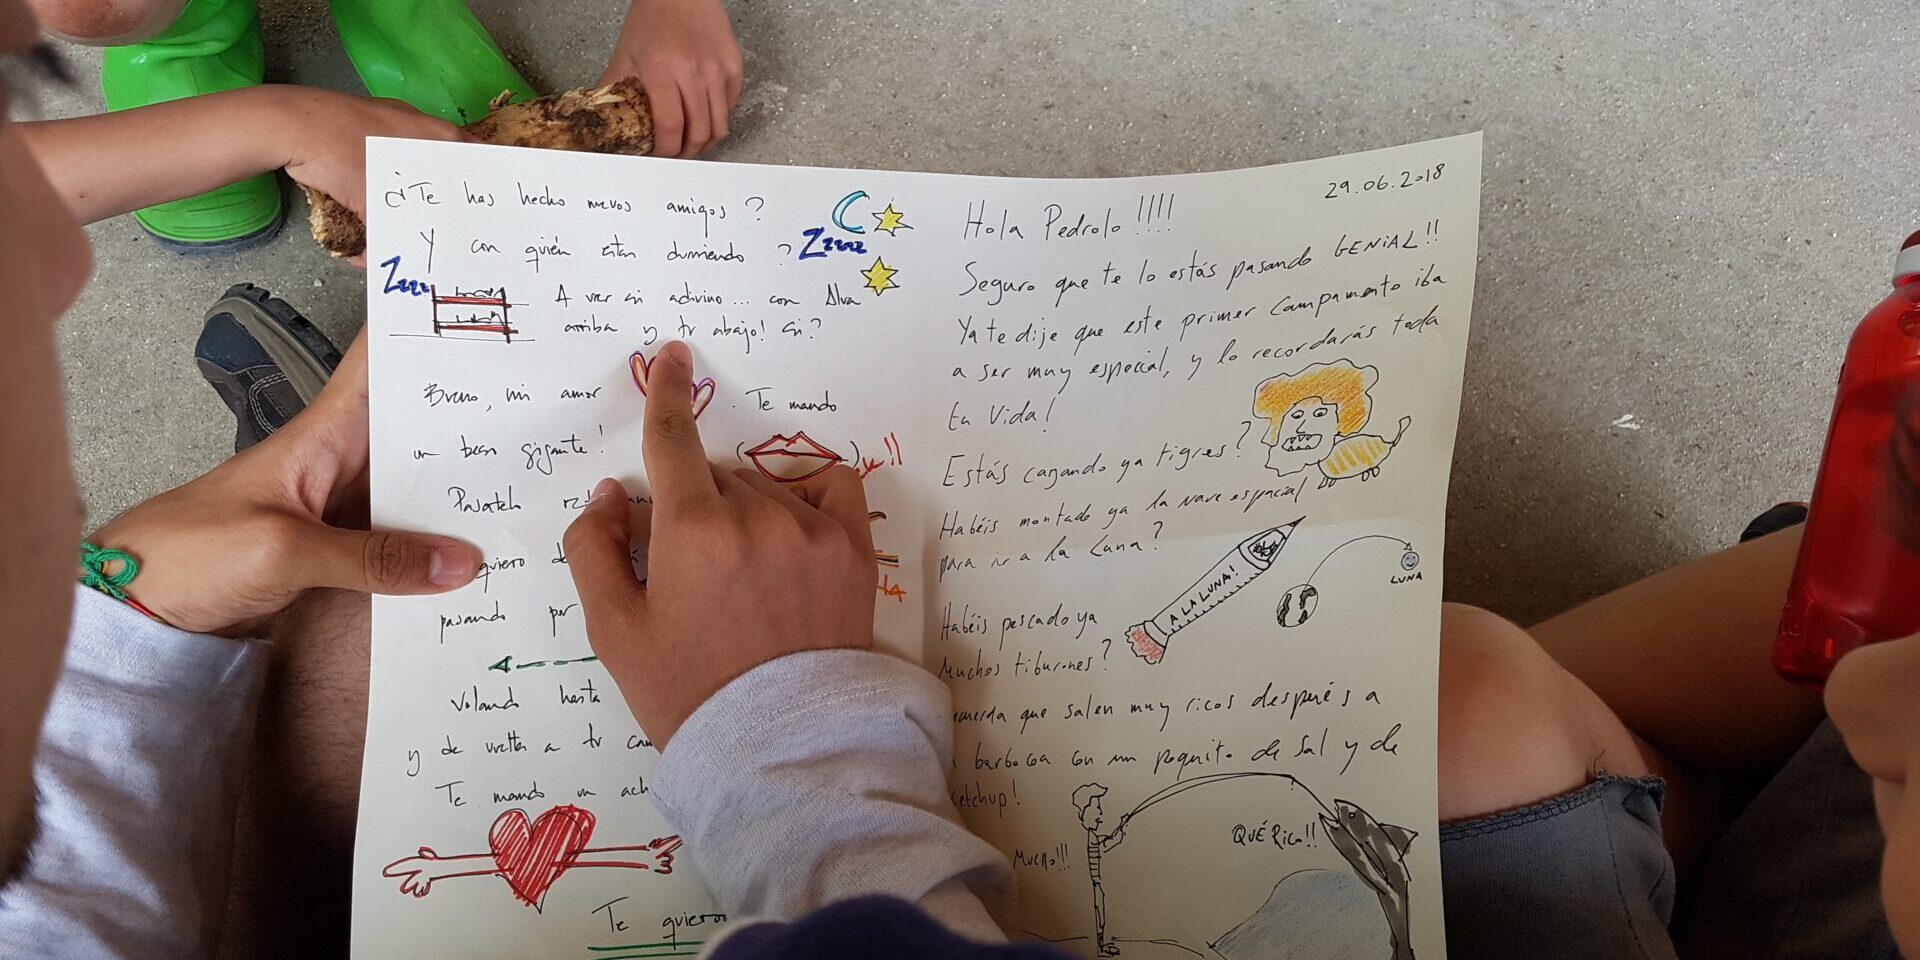 ¿Te has hecho nuevos amigos?
Y con quién estas durmiendo?
Zzzzz
Zzzz
A ver si adivino... con Alva
arriba y tu abajo! Si?
Bueno, mi amor
. Te mando
un beso gigante!
Pasatelo
quiero
pasando por
Volando hasta
y de vuelta a tu
Te mando un
Te quiero
29.06.2018
Hola Pedrolo!!!!
Seguro que te lo estás pasando GENIAL!!
Ya te dije que este primer campamento iba
a ser muy especial, y lo recordarás toda
tu vida!
Estás cazando ya tigres?
Habéis montado ya la nave espacial
para ir a la Luna?
A LA LUNA!
LUNA
Habéis pescado ya
muchos tiburones?
que salen muy ricos después a
barbacoa con un poquito de sal y de
ketchup!
MUCHO!!!
QUÉ RICO!!